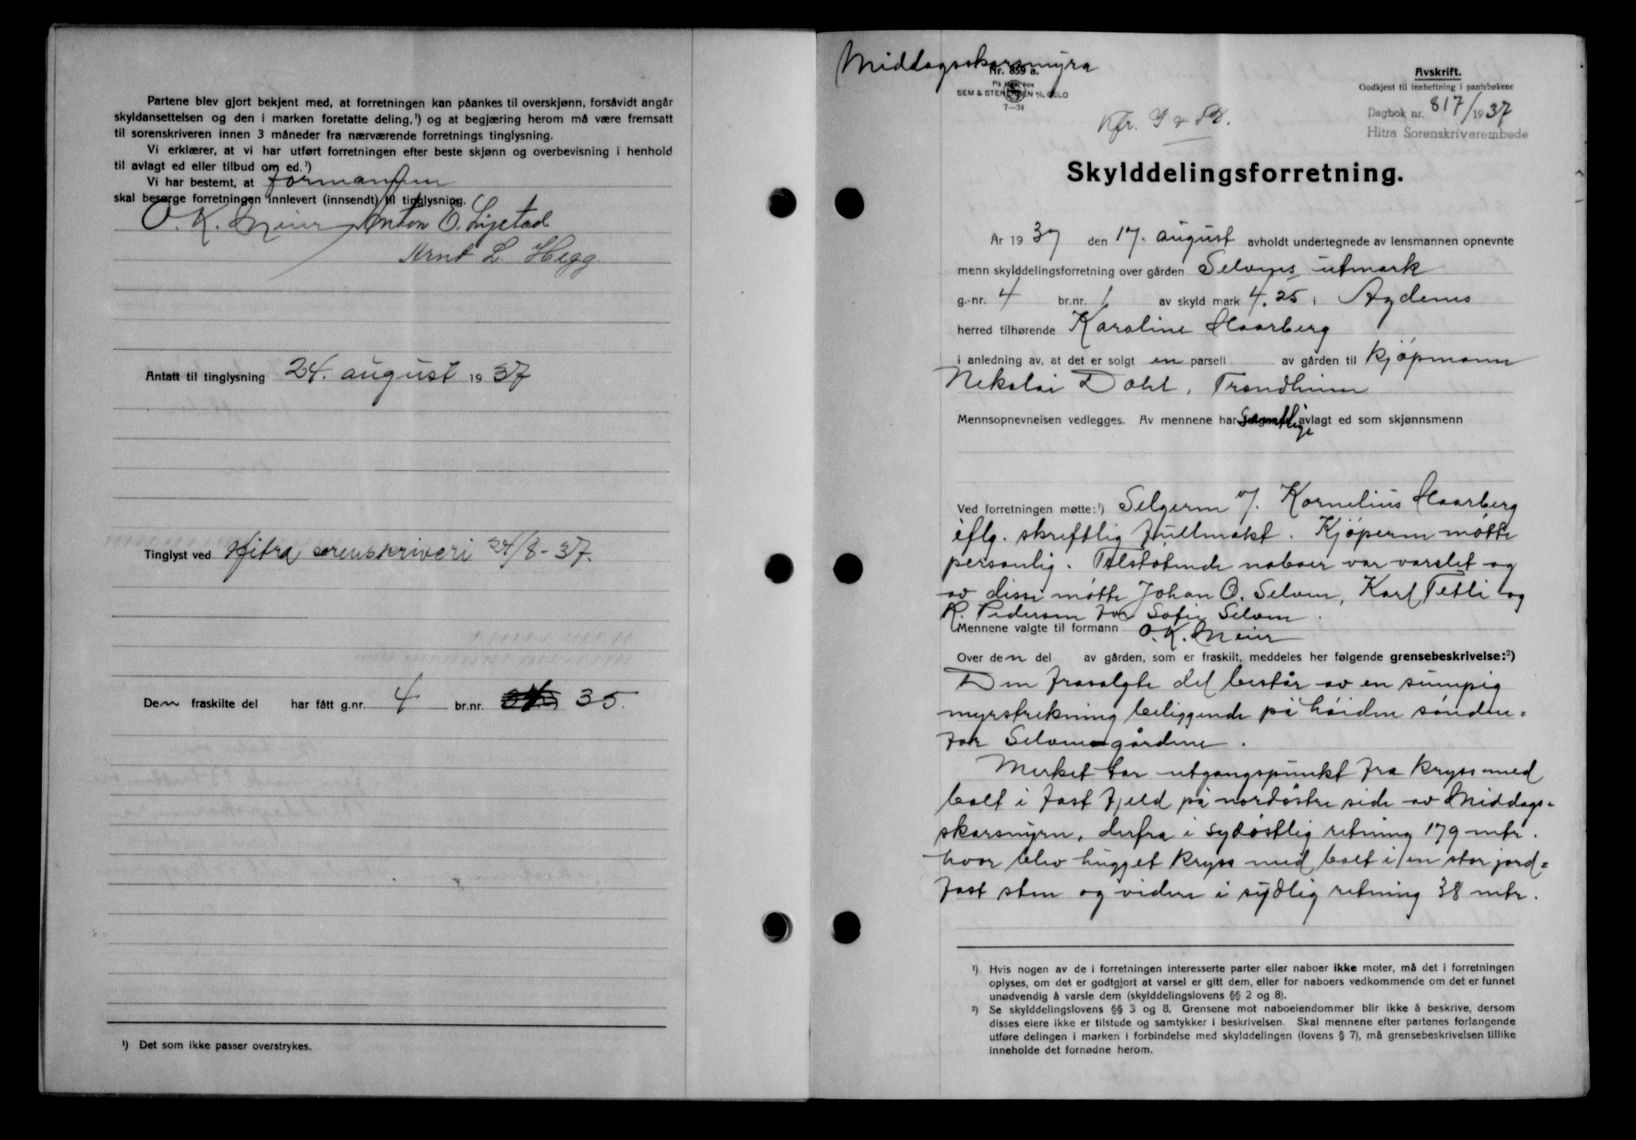 Partene blev gjort bekjent med, at forretningen kan påankes til overskjønn, forsåvidt angår
skyldansettelsen og den i marken foretatte deling,¹) og at begjæring herom må være fremsatt
til sorenskriveren innen 3 måneder fra nærværende forretnings tinglysning.
Vi erklærer, at vi har utført forretningen efter beste skjønn og overbevisning i henhold
til avlagt ed eller tilbud om ed.¹)
Vi har bestemt, at formannen
skal besørge forretningen innlevert (innsendt) til tinglysning.
O. K. Meier Anton O. Lystad
Arnt L. Hegg
Antatt til tinglysning 24. august 1937
Tinglyst ved Hitra sorenskriveri 24/8-37.
Den fraskilte del har fått g.nr. 4 br.nr. 35.
¹) Det som ikke passer overstrykes.
Middagsskarsmyra
Nr. 859 a.
SEM & STENERSEN A/S, OSLO
7—34
Avskrift.
Godkjent til innheftning i pantebøkene
Dagbok nr. 817/1937
Hitra Sorenskriverembede
Skylddelingsforretning.
År 1937 den 17. august avholdt undertegnede av lensmannen opnevnte
menn skylddelingsforretning over gården Selvnes utmark
g.-nr. 4 br.nr. 1 av skyld mark 4,25 i Agdenes
herred tilhørende Karoline Haarberg
i anledning av, at det er solgt en parsell av gården til kjøpmann
Nikolai Dahl, Trondheim
Mennsopnevnelsen vedlegges. Av mennene har samtlige avlagt ed som skjønnsmenn
Ved forretningen møtte:¹) Selgeren v/. Kornelius Haarberg
iflg. skriftlig fullmakt. Kjøperen møtte
personlig. Tilstøtende naboer var varslet og
av disse møtte Johan O. Selven, Karl Tetli og
R. Pedersen for Sofie Selven.
Mennene valgte til formann O. K. Meier
Over den del av gården, som er fraskilt, meddeles her følgende grensebeskrivelse:²)
Den frasolgte del består av en sumpig
myrstrekning beliggende på høiden sønden-
for Selvnesgårdene.
Merket tar utgangspunkt fra kryss med
bolt i fast fjeld på nordøstre side av Middags-
skarsmyren, derfra i sydøstlig retning 179 mtr.
hvor blev hugget kryss med bolt i en stor jord-
fast sten og videre i sydlig retning 38 mtr.
¹) Hvis nogen av de i forretningen interesserte parter eller naboer ikke møter, må det i forretningen
oplyses, om det er godtgjort at varsel er gitt dem, eller for naboers vedkommende om det er funnet
unødvendig å varsle dem (skylddelingslovens §§ 2 og 8).
²) Se skylddelingslovens §§ 3 og 8. Grensene mot naboeiendommer blir ikke å beskrive, dersom
disses eiere ikke er tilstede og samtykker i beskrivelsen. Skal mennene efter partenes forlangende
utføre delingen i marken i forbindelse med skylddelingen (lovens § 7), må grensebeskrivelsen tillike
inneholde det fornødne herom.